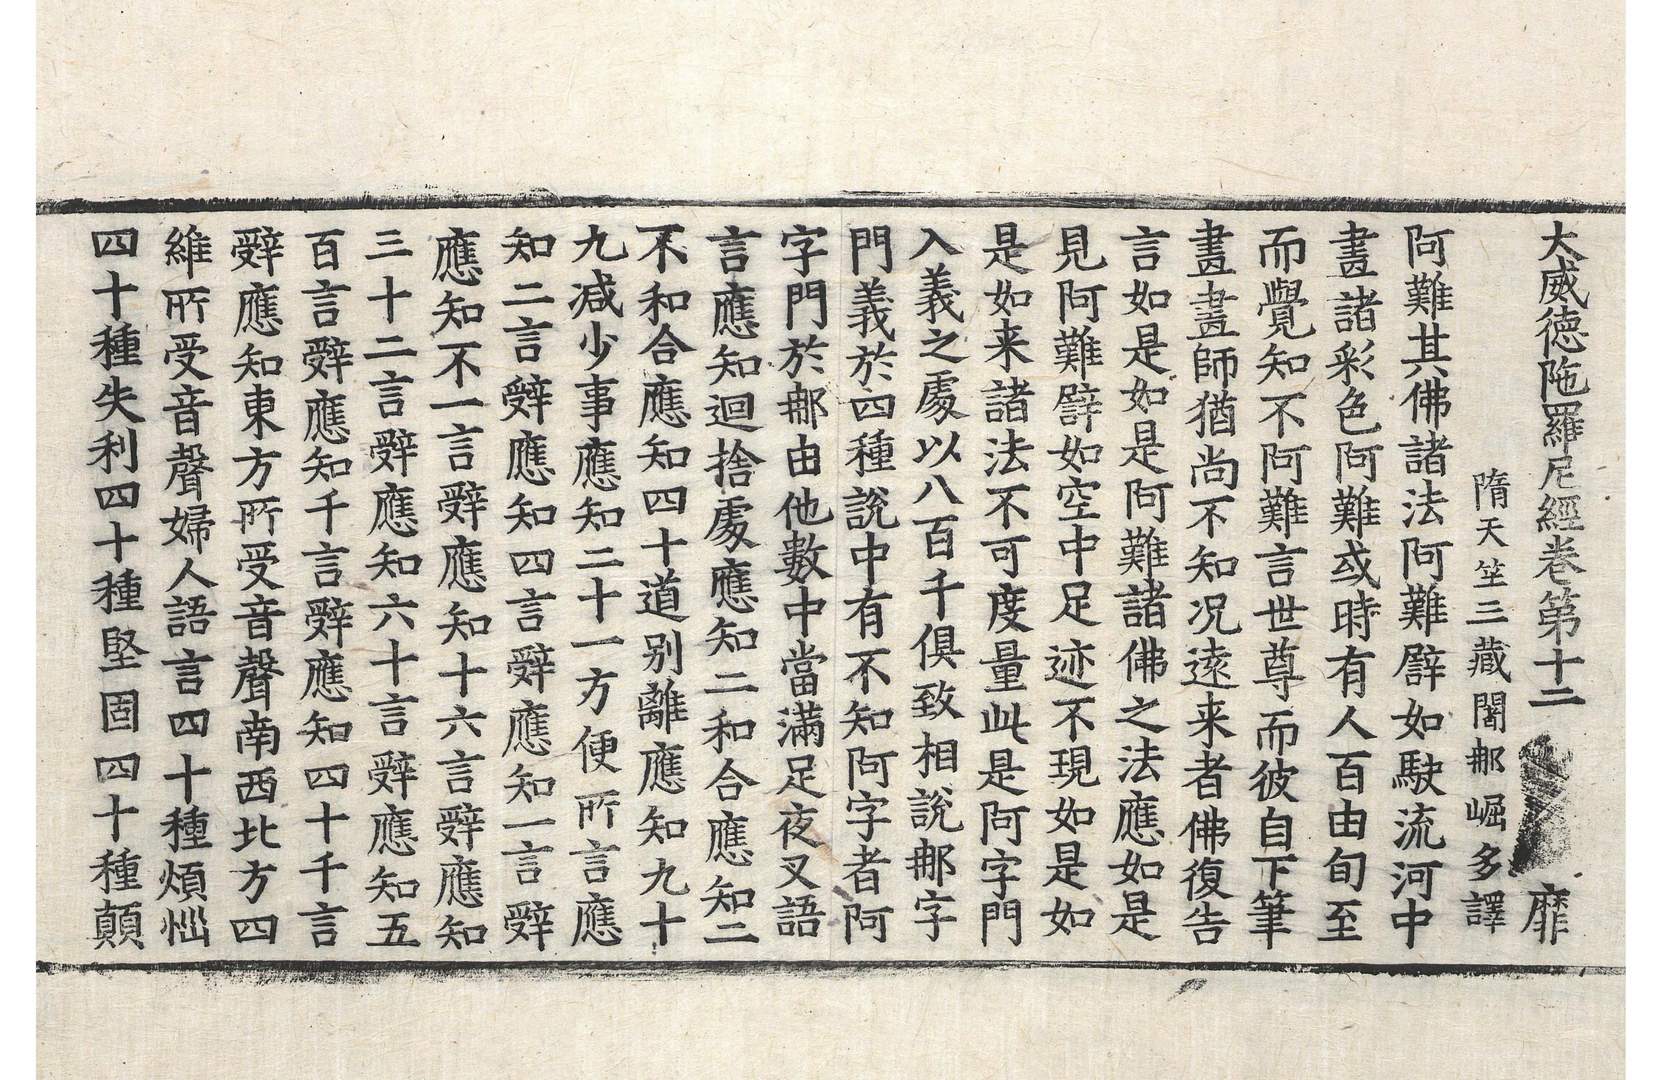 大威德陁羅尼經卷第十二 靡
隋天竺三藏闍那崛多譯
阿難其佛諸法阿難譬如駛流河中
畫諸彩色阿難或時有人百由旬至
而覺知不阿難言世尊而彼自下筆
畫畫師猶尚不知况遠来者佛復告
言如是如是阿難諸佛之法應如是
見阿難譬如空中足迹不現如是如
是如来諸法不可度量此是阿字門
入義之處以八百千俱致相說那字
門義於四種說中有不知阿字者阿
字門於那由他數中當滿足夜叉語
言應知迴捨處應知二和合應知二
不和合應知四十道别離應知九十
九減少事應知二十一方便所言應
知二言辭應知四言辭應知一言辭
應知不一言辭應知十六言辭應知
三十二言辭應知六十言辭應知五
百言辭應知千言辭應知四十千言
辭應知東方所受音聲南西北方四
維所受音聲婦人語言四十種煩惱
四十種失利四十種堅固四十種顛